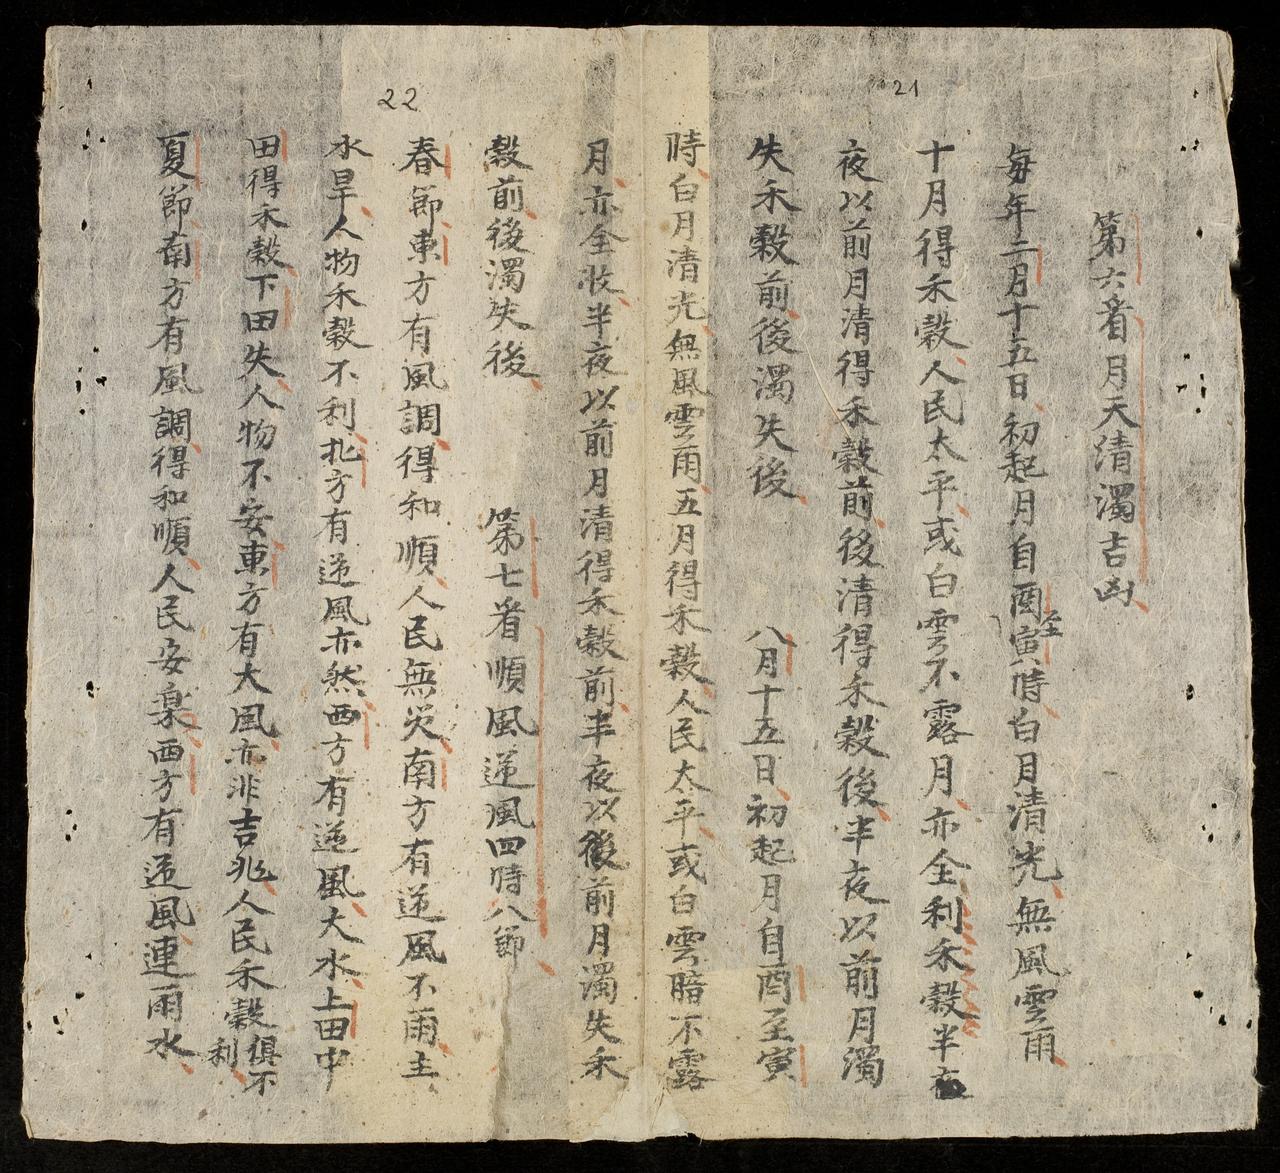 21
第六看月天清濁吉凶
每年二月十五日初起月自酉至寅時白月清光無風雲雨
十月得禾穀人民太平或白雲不露月亦全利禾穀半夜
夜以前月清得禾穀前後清得禾穀後半夜以前月濁
失禾穀前後濁失後 八月十五日初起月自酉至寅
時白月清光無風雲雨五月得禾穀人民太平或白雲暗不露
22
月亦全收半夜以前月清得禾穀前半夜以後前月濁失禾
穀前後濁失後 第七看順風逆風四時八節
春節東方有風調得和順人民無災南方有逆風不雨主
水旱人物禾穀不利北方有逆風亦然西方有逆風大水上田中
田得禾穀下田失人物不安東方有大風亦非吉兆人民禾穀俱不利
夏節南方有風調得和順人民安樂西方有逆風連雨水